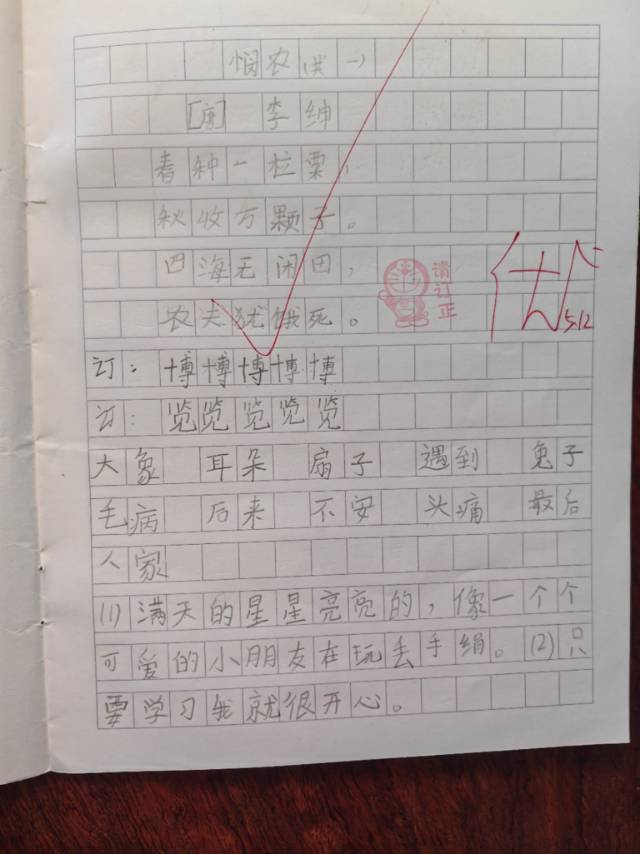 悯农(其一)
[唐] 李绅
春种一粒粟，
秋收万颗子。
四海无闲田，
农夫犹饿死。
请订正
优
5.12
订：博博博博博
订：览览览览览
大象 耳朵 扇子 遇到 兔子
毛病 后来 不安 头痛 最后
人家
(1)满天的星星亮亮的，像一个个
可爱的小朋友在玩丢手绢。(2)只
要学习我就很开心。